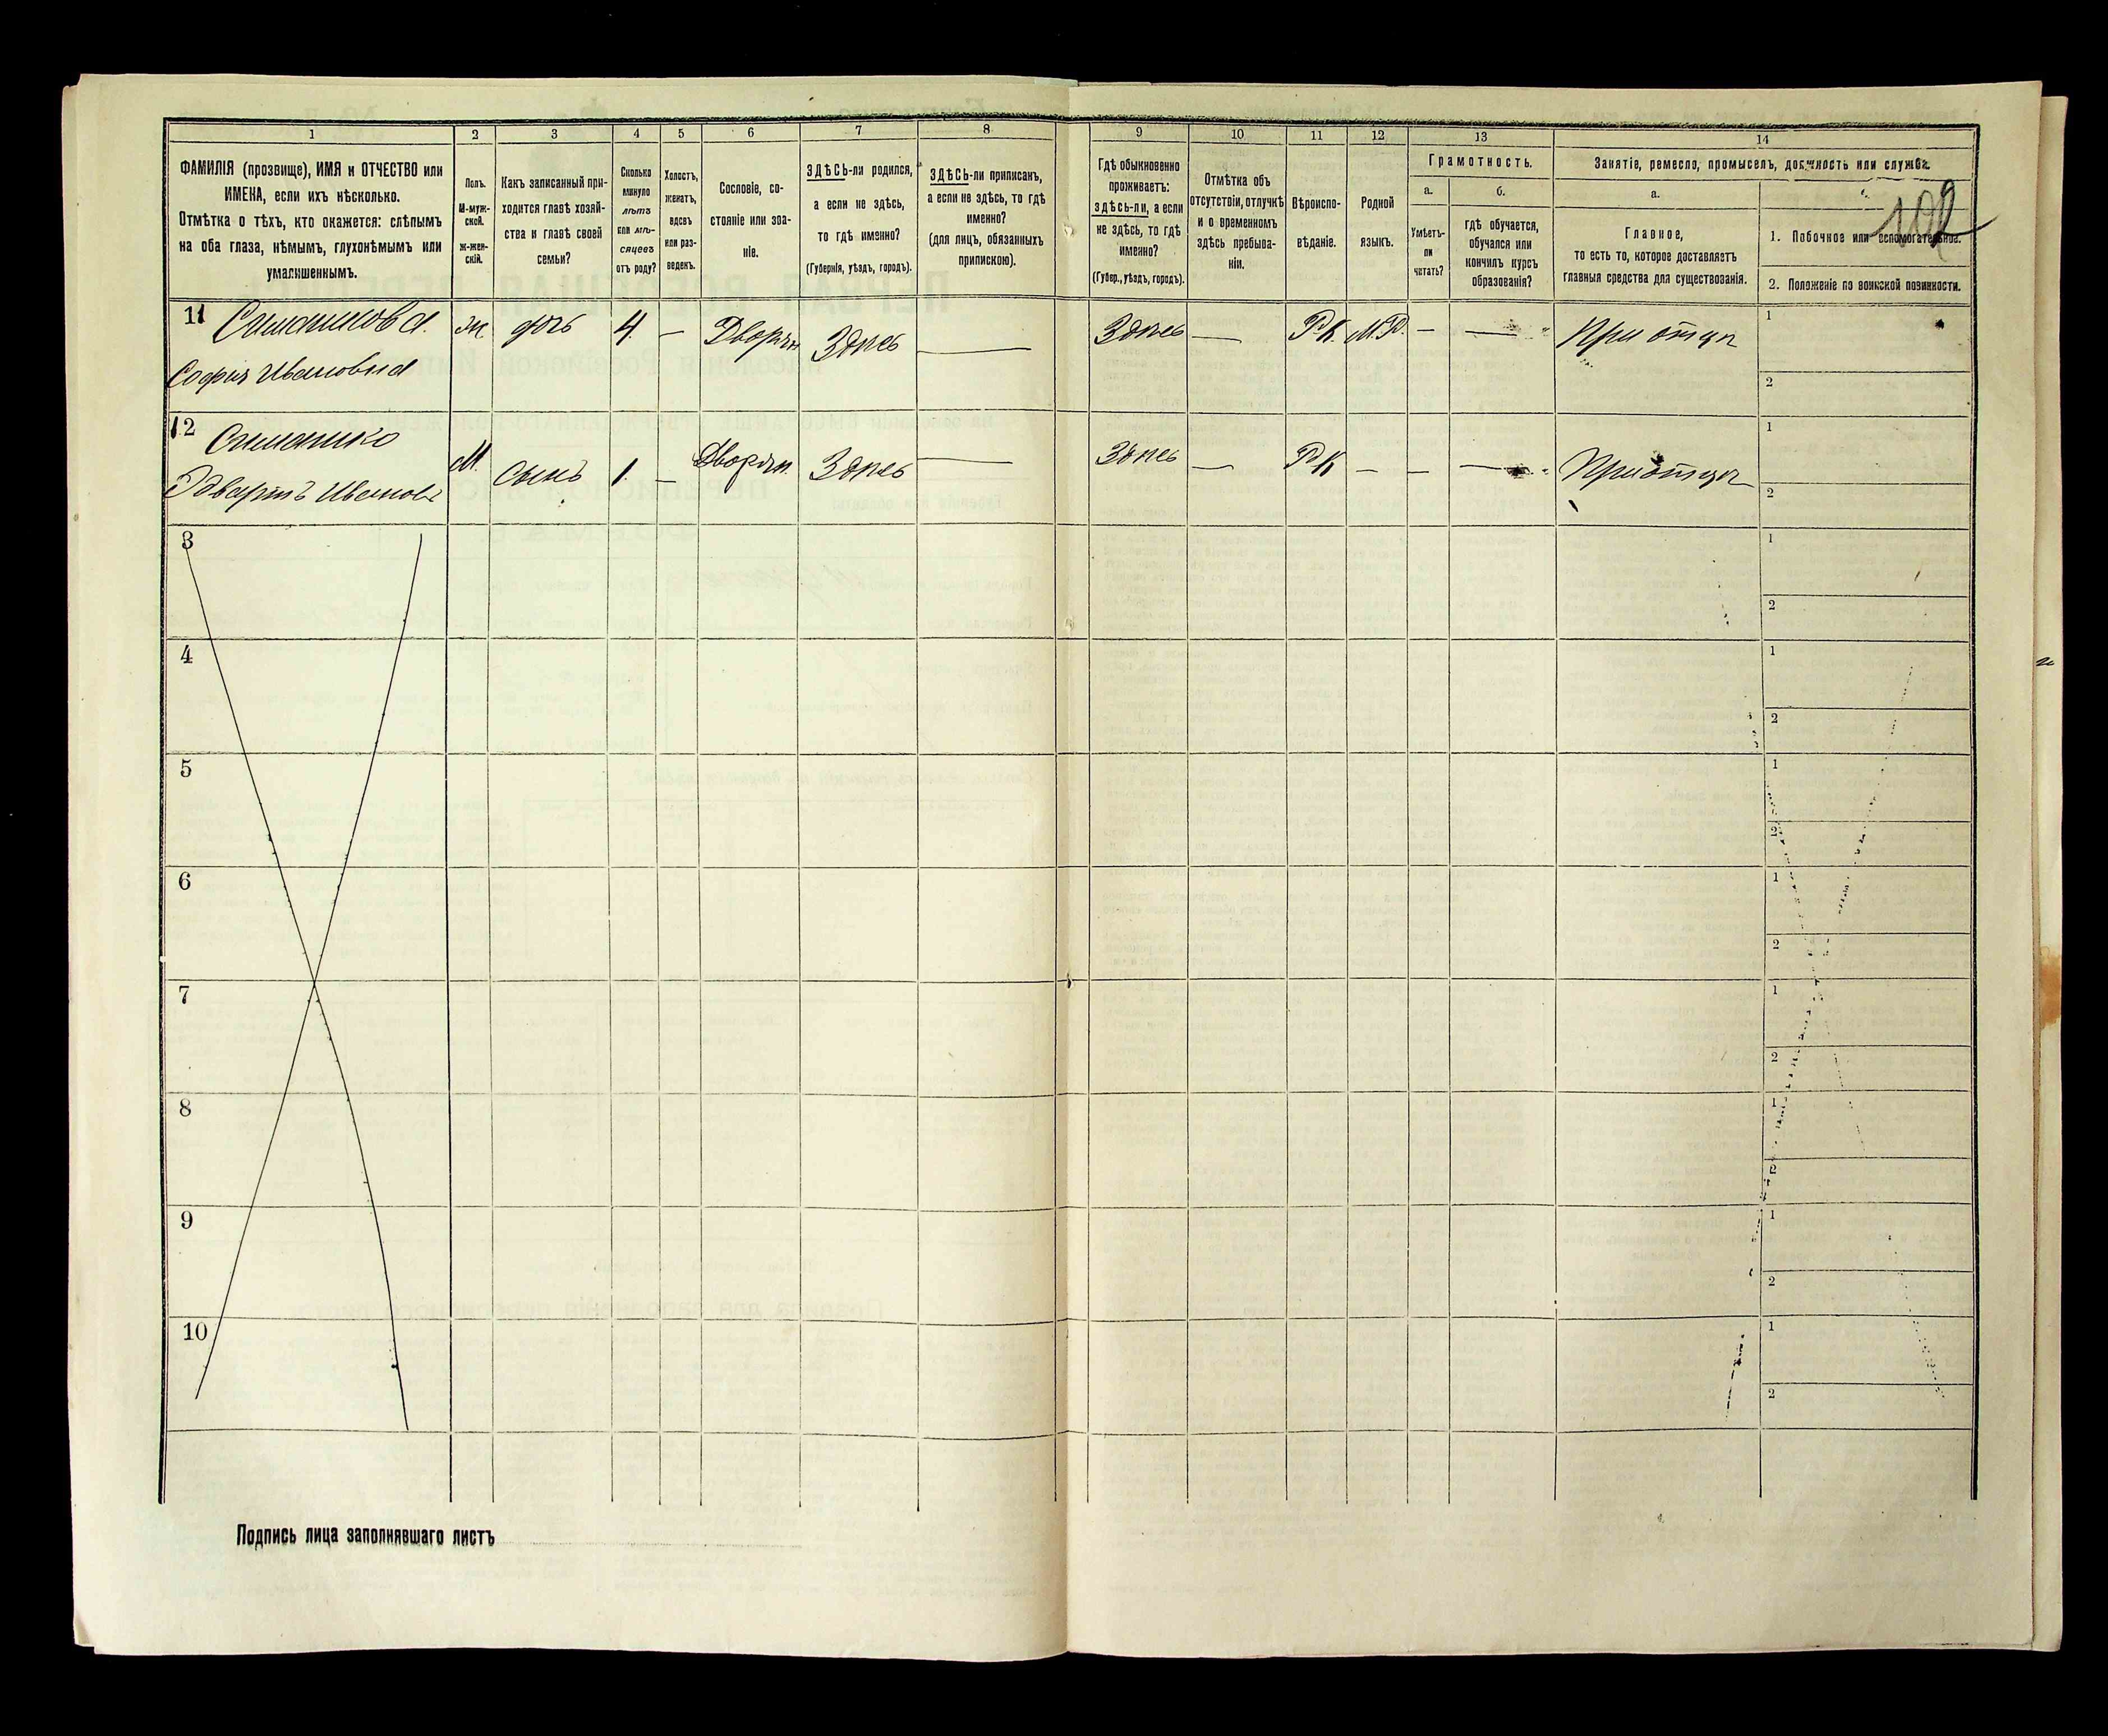 1 2 3 4 5 6 7 8 9 10 11 12 13 14
ФАМИЛІЯ (прозвище), ИМЯ и ОТЧЕСТВО или
ИМЕНА, если ихъ нѣсколько.
Отмѣтка о тѣхъ, кто окажется: слѣпымъ
на оба глаза, нѣмымъ, глухонѣмымъ или
умалишеннымъ.
Полъ.
М-муж-
ской.
Ж-жен-
скій.
Какъ записанный при-
ходится главѣ хозяй-
ства и главѣ своей
семьи?
Сколько
минуло
лѣтъ
или мѣ-
сяцевъ
отъ роду?
Холостъ,
женатъ,
вдовъ
или раз-
веденъ.
Сословіе, со-
стояніе или зва-
ніе.
ЗДѢСЬ-ли родился,
а если не здѣсь,
то гдѣ именно?
(Губернія, уѣздъ, городъ).
ЗДѢСЬ-ли приписанъ,
а если не здѣсь, то гдѣ
именно?
(для лицъ, обязанныхъ
припискою).
Гдѣ обыкновенно
проживаетъ:
здѣсь-ли, а если
не здѣсь, то гдѣ
именно?
(Губер., уѣздъ, городъ).
Отмѣтка объ
отсутствіи, отлучкѣ
и о временномъ
здѣсь пребыва-
ніи.
Вѣроиспо-
вѣданіе.
Родной
языкъ.
Грамотность.
а.
Умѣетъ-
ли
читать?
б.
гдѣ обучается,
обучался или
кончилъ курсъ
образованія?
Занятіе, ремесло, промыселъ, должность или служба.
а.
Главное,
то есть то, которое доставляетъ
главныя средства для существованія.
102
1. Побочное или вспомогательное.
2. Положеніе по воинской повинности.
11 ж дочь 4 — Дворян Здѣсь — Здѣсь — Р.К. — — При отцѣ 1
Софія Ивановна
2
12 М. сынъ 1. — Дворян. Здѣсь — Здѣсь — Р.К — — — При отцѣ 1
Эдвартъ
2
3 1
2
4 1
2
5 1
2
6 1
2
7 1
2
8 1
2
9 1
2
10 1
2
Подпись лица заполнявшаго листъ